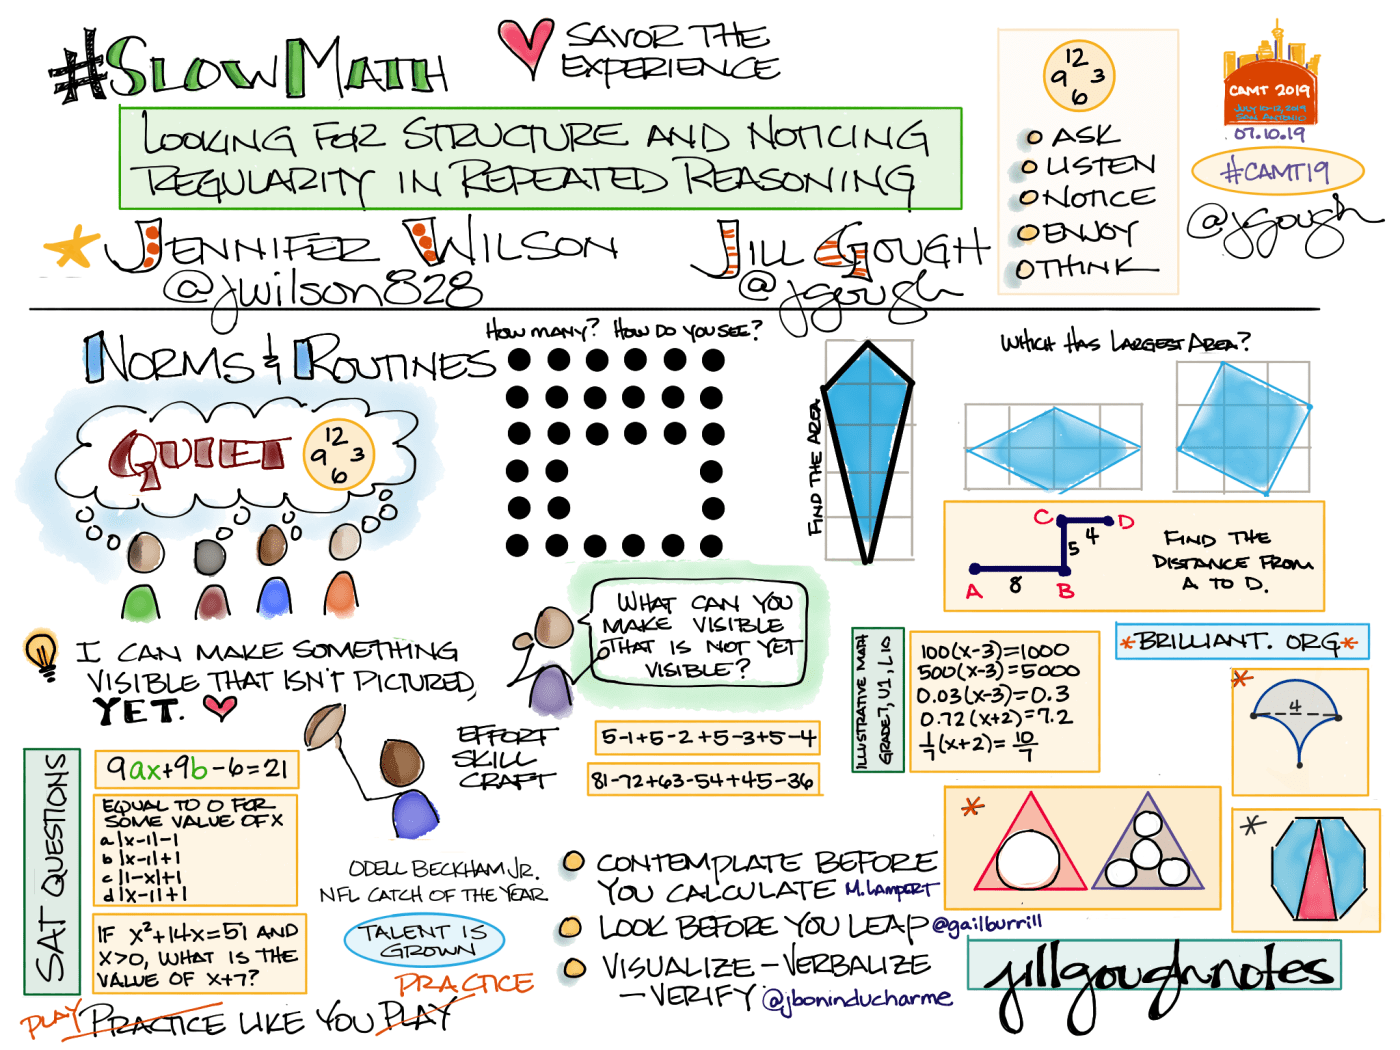 #SLOWMATH
SAVOR THE
EXPERIENCE
LOOKING FOR STRUCTURE AND NOTICING
REGULARITY IN REPEATED REASONING
JENNIFER WILSON
@jwilson828
JILL GOUGH
@jgough
12
9 3
6
ASK
LISTEN
NOTICE
ENJOY
THINK
CAMT 2019
JULY 10-12, 2019
SAN ANTONIO
07.10.19
#CAMT19
@jgough
NORMS & ROUTINES
QUIET
12
9 3
6
HOW MANY? HOW DO YOU SEE?
FIND THE AREA
WHICH HAS LARGEST AREA?
C D
4
5
A 8 B
FIND THE
DISTANCE FROM
A TO D.
I CAN MAKE SOMETHING
VISIBLE THAT ISN'T PICTURED,
YET.
WHAT CAN YOU
MAKE VISIBLE
THAT IS NOT YET
VISIBLE?
ILLUSTRATIVE MATH
GRADE 7, U1, L10
100(x-3)=1000
500(x-3)=5000
0.03(x-3)=0.3
0.72(x+2)=7.2
1/7(x+2)=10/7
*BRILLIANT.ORG*
*
4
SAT QUESTIONS
9ax+9b-6=21
EQUAL TO 0 FOR
SOME VALUE OF X
a |x-1|-1
b |x-1|+1
c |1-x|+1
d |x-1|+1
IF x²+14x=51 AND
X>0, WHAT IS THE
VALUE OF X+7?
EFFORT
SKILL
CRAFT
5-1+5-2+5-3+5-4
81-72+63-54+45-36
ODELL BECKHAM JR.
NFL CATCH OF THE YEAR
TALENT IS
GROWN
PRACTICE
PLAY PRACTICE LIKE YOU PLAY
CONTEMPLATE BEFORE
YOU CALCULATE M. LAMPERT
LOOK BEFORE YOU LEAP @gailburrill
VISUALIZE-VERBALIZE
-VERIFY @jboninducharme
*
*
jillgoughnotes